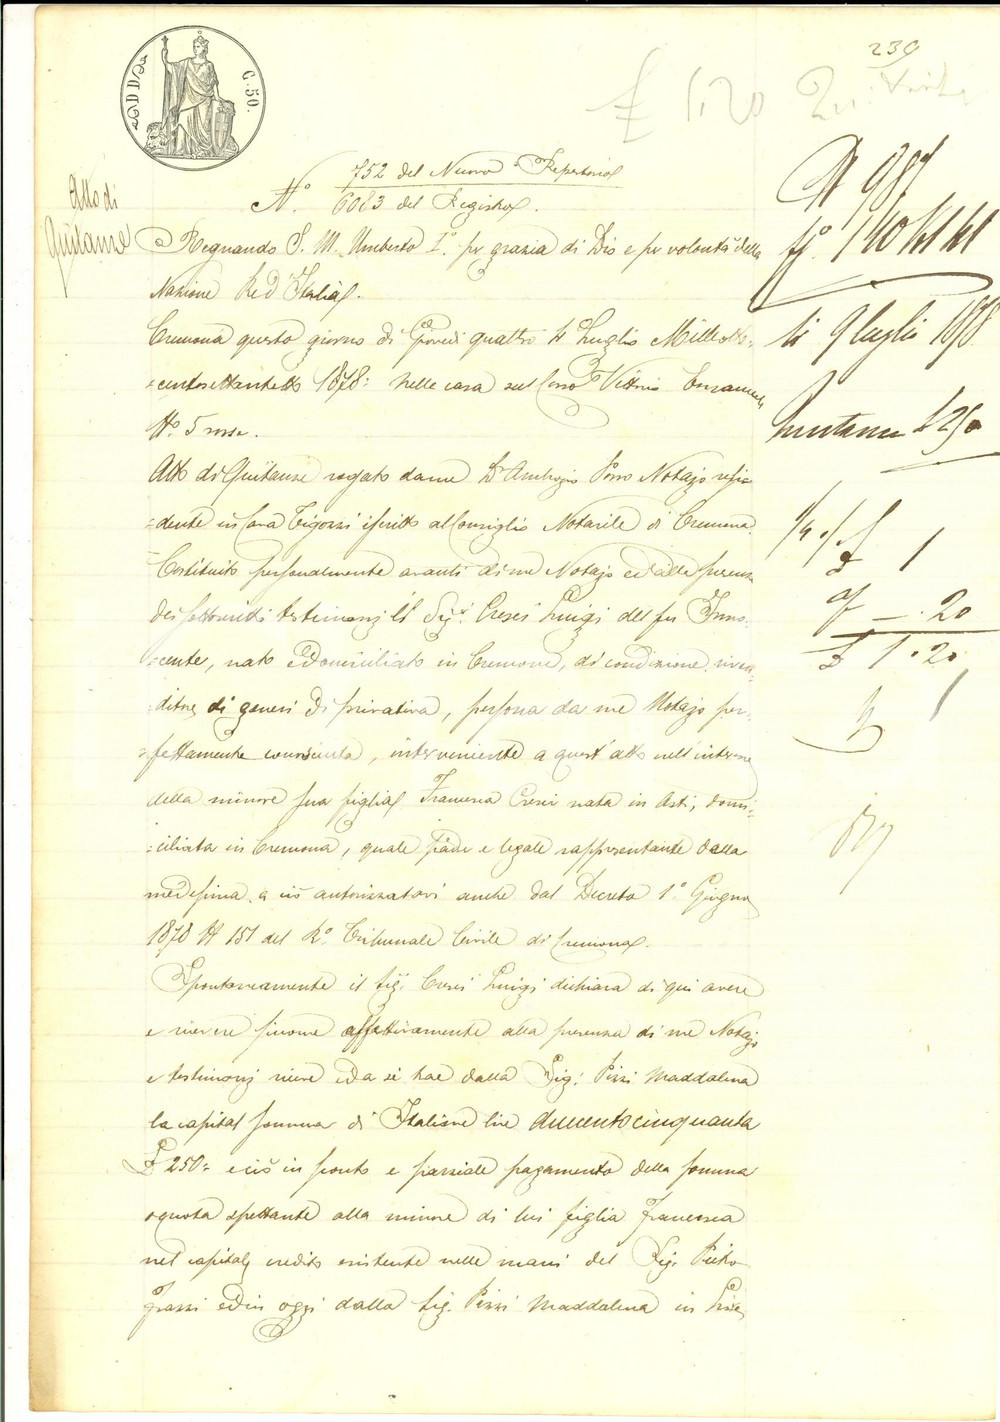 239
£ 1.20
C. 50.
N.° 752 del Nuovo Repertorio
6083 del Registro.
Atto di
Quitanza
Regnando S. M. Umberto I.° per grazia di Dio e per volontà della
Nazione Re d'Italia.
Cremona questo giorno di Giovedì quattro 4 Luglio Milleotto-
=centosettantotto 1878: nella casa sul Corso Vittorio Emanuele
N.° 5 rosso.
Atto di Quitanza rogato da me Dr Ambrogio Porro Notajo resi-
=dente in Cava Tigozzi iscritto al Consiglio Notarile di Cremona.
Costituito personalmente avanti di me Notajo ed alla presenza
dei sottoscritti testimonj il Sig.r Cresci Luigi del fu Inno-
=cente, nato e domiciliato in Cremona, di condizione riven-
=ditore di generi di privativa, persona da me Notajo per-
=fettamente conosciuta, interveniente a quest'atto nell'interesse
della minore sua figlia Francesca Cresci nata in Asti, domi-
=ciliata in Cremona, quale padre e legale rappresentante della
medesima, a ciò autorizzato anche dal Decreto 1.° Giugno
1878 N 151 del R.° Tribunale Civile di Cremona.
Spontaneamente il Sig. Cresci Luigi dichiara di qui avere
e ricevere siccome effettivamente alla presenza di me Notajo
e testimonj riceve ed a sé trae dalla Sig.ra Pizzi Maddalena
la capital somma di Italiane lire duecentocinquanta
£ 250= e ciò in sconto e parziale pagamento della somma
o quota spettante alla minore di lui figlia Francesca
nel capitale credito esistente nelle mani del Sig. Pietro
Grassi ed in oggi dalla Sig. Pizzi Maddalena in
N 987
li 9 luglio 1878
£ 250
£ 1
- . 20
£ 1.20